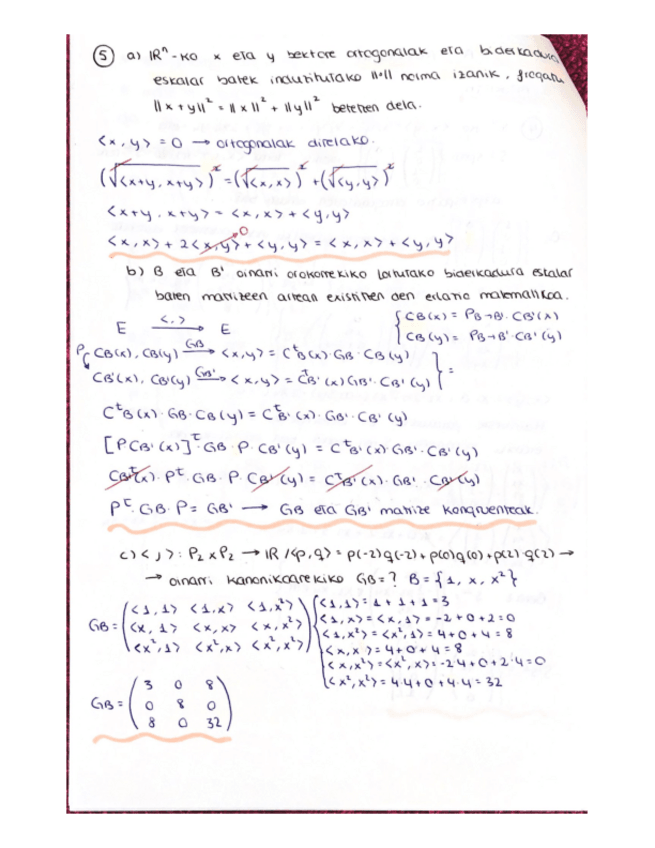 ⑤ a) IR^n-ko x eta y bektore ortogonalak eta biderkadura
eskalar batek induzitutako ||·|| norma izanik, frogatu
||x+y||² = ||x||² + ||y||² betetzen dela.
<x,y> = 0 → ortogonalak direlako.
(√<x+y, x+y>)² = (√<x,x>)² + (√<y,y>)²
<x+y, x+y> = <x,x> + <y,y>
<x,x> + 2<x,y> + <y,y> = <x,x> + <y,y>
0
b) B eta B' oinarri orokorrekiko lortutako biderkadura eskalar
baten matrizeen artean existitzen den erlazio matematikoa.
E <,>→ E
{ CB(x) = PB→B' · CB'(x)
CB(y) = PB→B' · CB'(y)
P CB(x), CB(y) GB→ <x,y> = C^tB(x) · GB · CB(y)
CB'(x), CB'(y) GB'→ <x,y> = C^tB'(x) GB' · CB'(y) } =
C^tB(x) · GB · CB(y) = C^tB'(x) · GB' · CB'(y)
[PCB'(x)]^t · GB · P · CB'(y) = C^tB'(x) · GB' · CB'(y)
CB'^t(x) · P^t · GB · P · CB'(y) = C^tB'(x) · GB' · CB'(y)
P^t · GB · P = GB' → GB eta GB' matrize kongruenteak.
c) <,> : P₂ x P₂ → IR / <p,q> = p(-2)q(-2) + p(0)q(0) + p(2)·q(2) →
→ oinarri kanonikoarekiko GB = ? B = {1, x, x²}
GB = ( <1,1> <1,x> <1,x²>
<x,1> <x,x> <x,x²>
<x²,1> <x²,x> <x²,x²> )
{ <1,1> = 1 + 1 + 1 = 3
<1,x> = <x,1> = -2 + 0 + 2 = 0
<1,x²> = <x²,1> = 4 + 0 + 4 = 8
<x,x> = 4 + 0 + 4 = 8
<x,x²> = <x²,x> = -2·4 + 0 + 2·4 = 0
<x²,x²> = 4·4 + 0 + 4·4 = 32
GB = ( 3 0 8
0 8 0
8 0 32 )